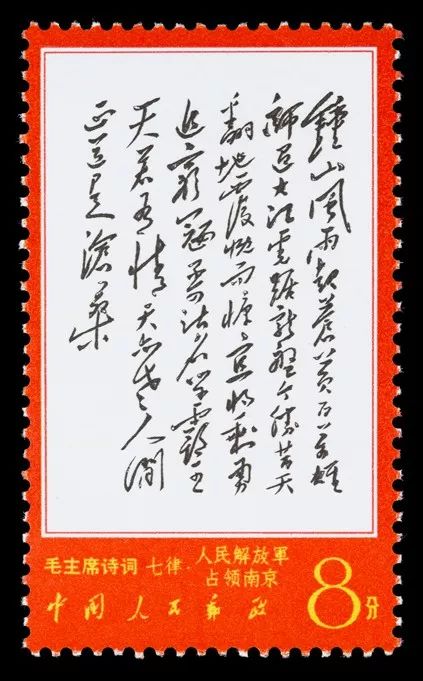 鐘山風雨起蒼黃百萬雄
師過大江虎踞龍盤今勝昔天
翻地覆慨而慷宜将剩勇
追窮寇不可沽名學霸王
天若有情天亦老人間
正道是滄桑
毛主席诗词 七律·人民解放軍
占领南京
中国人民邮政
8分